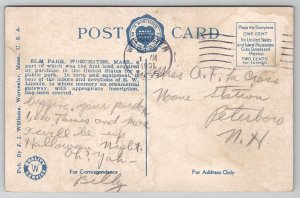 POST CARD
ELM PARK, WORCESTER, MASS., a
part of which was the first land acquired
by purchase in the United States for a
public park. In form and equipment,
its of the labors and devotions of H.
W. Lincoln, in whose memory an ornamental
gateway, with appropriate inscription,
has been erected.
Place the Stamp here
ONE CENT
for United States
and Island Possessions
Cuba, Canada and
Mexico
TWO CENTS
for Foreign
Pub. by J. I. Williams, Worcester, Mass. U. S. A.
1931
Miss A. F.
Noone Station
Peterboro
N. H.
your
two times and
I will be up
Halloween Night.
Oh! Yah-
Billy
For Correspondence
For Address Only